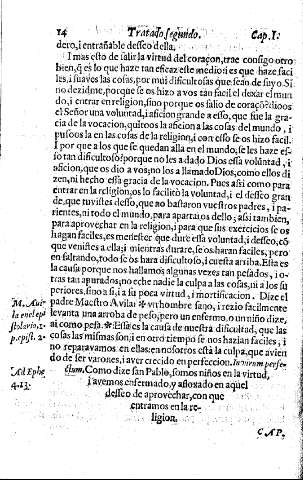 14 Tratado segundo. Cap. I.
dero, i entrañable desseo della.
I mas esto de salir la virtud del coraçon, trae consigo otro
bien, q̃ es lo que haze tan eficaz este medio: i es que haze faciles,
i suaves las cosas, por mui dificultosas que seãn de suyo. Si
no dezidme, porque se os hizo a vos tan facil el dexar el mundo,
i entrar en religion, sino porque os salio de coraçõ? dioos
el Señor una voluntad, i aficion grande a esso, que fue la gracia
de la vocacion, quitoos la aficion a las cosas del mundo, i
pusoos la en las cosas de la religion, i con esso se os hizo facil.
I por que a los que se quedan allà en el mundo, se les haze esso
tan dificultoso? porque no les a dado Dios essa voluntad, i
aficion, que os dio a vos; no los a llamado Dios, como ellos dizen,
ni hecho essa gracia de la vocacion. Pues assi como para
entrar en la religion, os lo facilitò la voluntad, i el desseo grande,
que tuvistes desso, que no bastaron vuestros padres, i parientes,
ni todo el mundo, para apartaros dello; assi tambien,
para aprovechar en la religion, i para que sus exercicios se os
hagan faciles, es menester que dure essa voluntad, i desseo, cõ
que venistes a ella; i mientras durare, se os haran faciles, pero
en faltando, todo se os hara dificultoso, i cuesta arriba. Esta es
la causa porque nos hallamos algunas vezes tan pesados, i otras
tan apurados; no eche nadie la culpa a las cosas, ni a los superiores,
sino a si, i a su poca virtud, i mortificacion. Dize el
M. Avila
padre Maestro Avila: * un hombre sano, i rezio facilmente
levanta una arroba de peso, pero un enfermo, o un niño dize,
ai como pesa. * Esta es la causa de nuestra dificultad, que las
p. epist. 2.
cosas las mismas son, i en otro tiempo se nos hazian faciles, i
no reparavamos en ellas: en nosotros està la culpa, que aviendo
de ser varones, i aver crecido en perfeccion, In virum perfectum.
Ad Ephe
Como dize san Pablo, somos niños en la virtud,
4. 13.
i avemos enfermado, y afloxado en aquel
desseo de aprovechar, con que
entramos en la religion.
CAP.